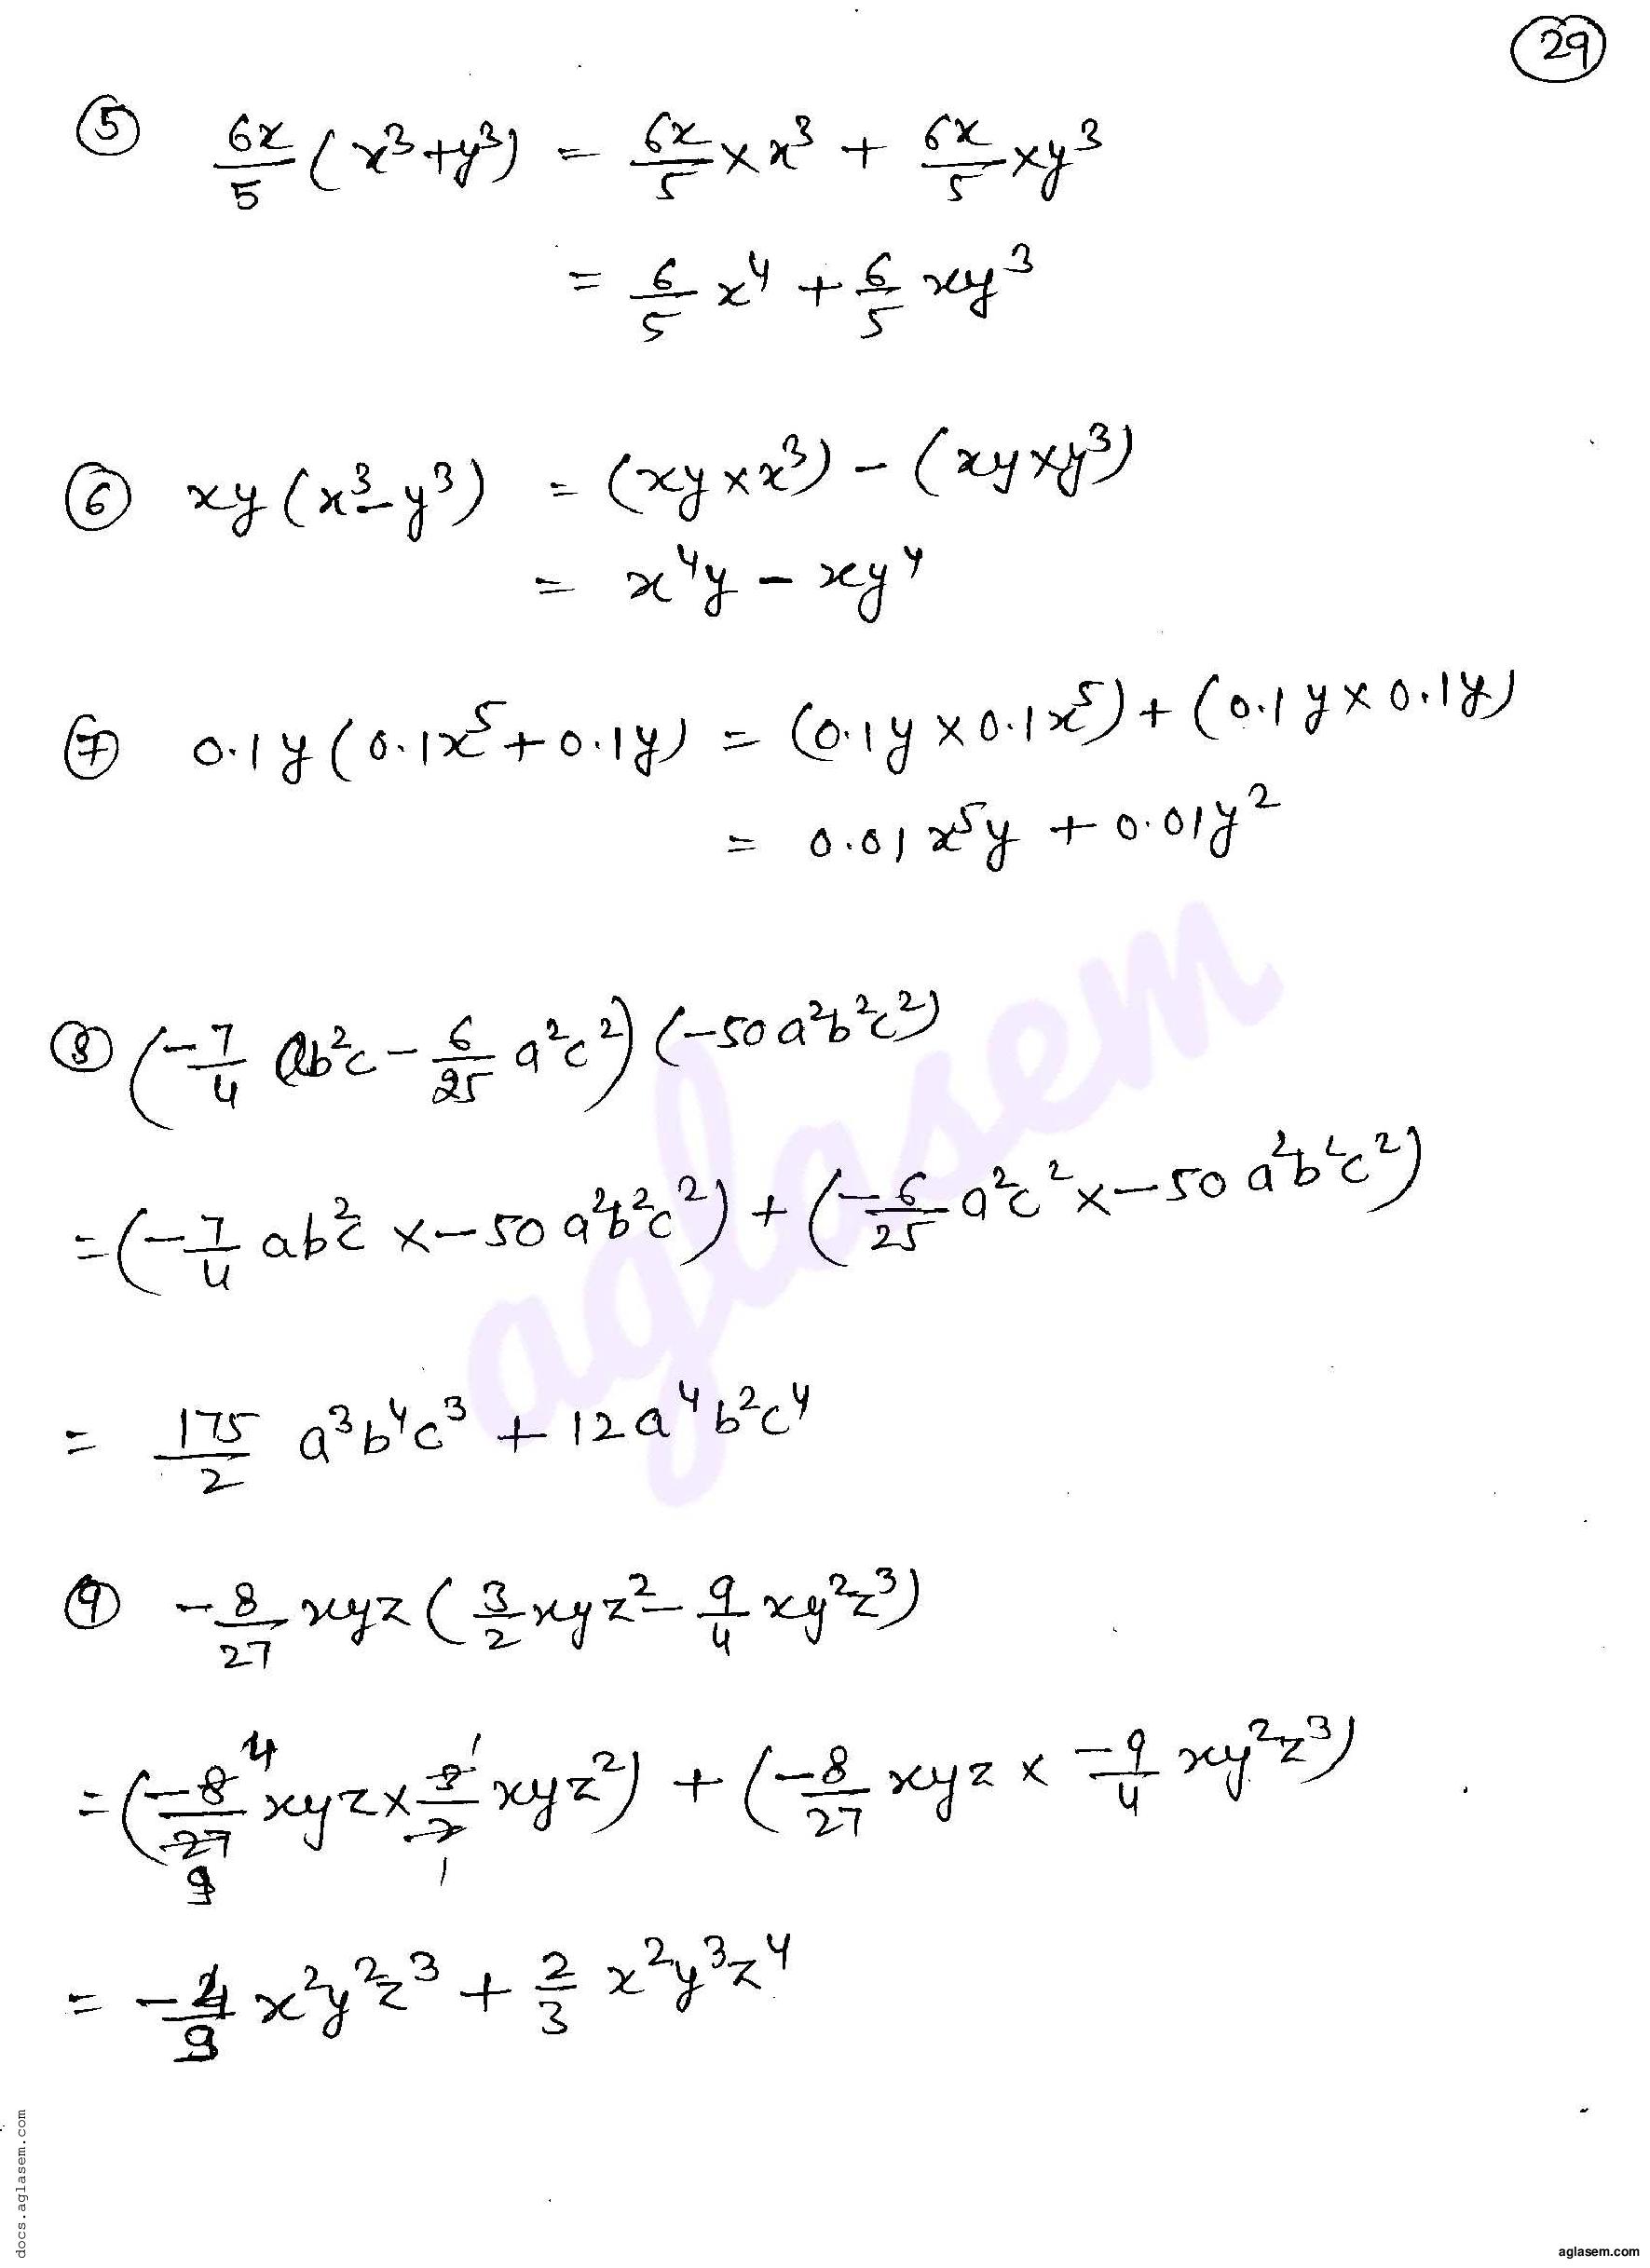 29
⑤ 6x/5 (x³+y³) = 6x/5 × x³ + 6x/5 × y³
= 6/5 x⁴ + 6/5 xy³
⑥ xy(x³-y³) = (xy × x³) - (xy × y³)
= x⁴y - xy⁴
⑦ 0.1y(0.1x⁵+0.1y) = (0.1y × 0.1x⁵) + (0.1y × 0.1y)
= 0.01x⁵y + 0.01y²
⑧ (-7/4 ab²c - 6/25 a²c²)(-50a²b²c²)
= (-7/4 ab²c × -50a²b²c²) + (-6/25 a²c² × -50a²b²c²)
= 175/2 a³b⁴c³ + 12a⁴b²c⁴
⑨ -8/27 xyz (3/2 xyz² - 9/4 xy²z³)
4 1
= (-8/27 xyz × 3/2 xyz²) + (-8/27 xyz × -9/4 xy²z³)
9 1
= -4/9 x²y²z³ + 2/3 x²y³z⁴
aglasem
docs.aglasem.com
aglasem.com